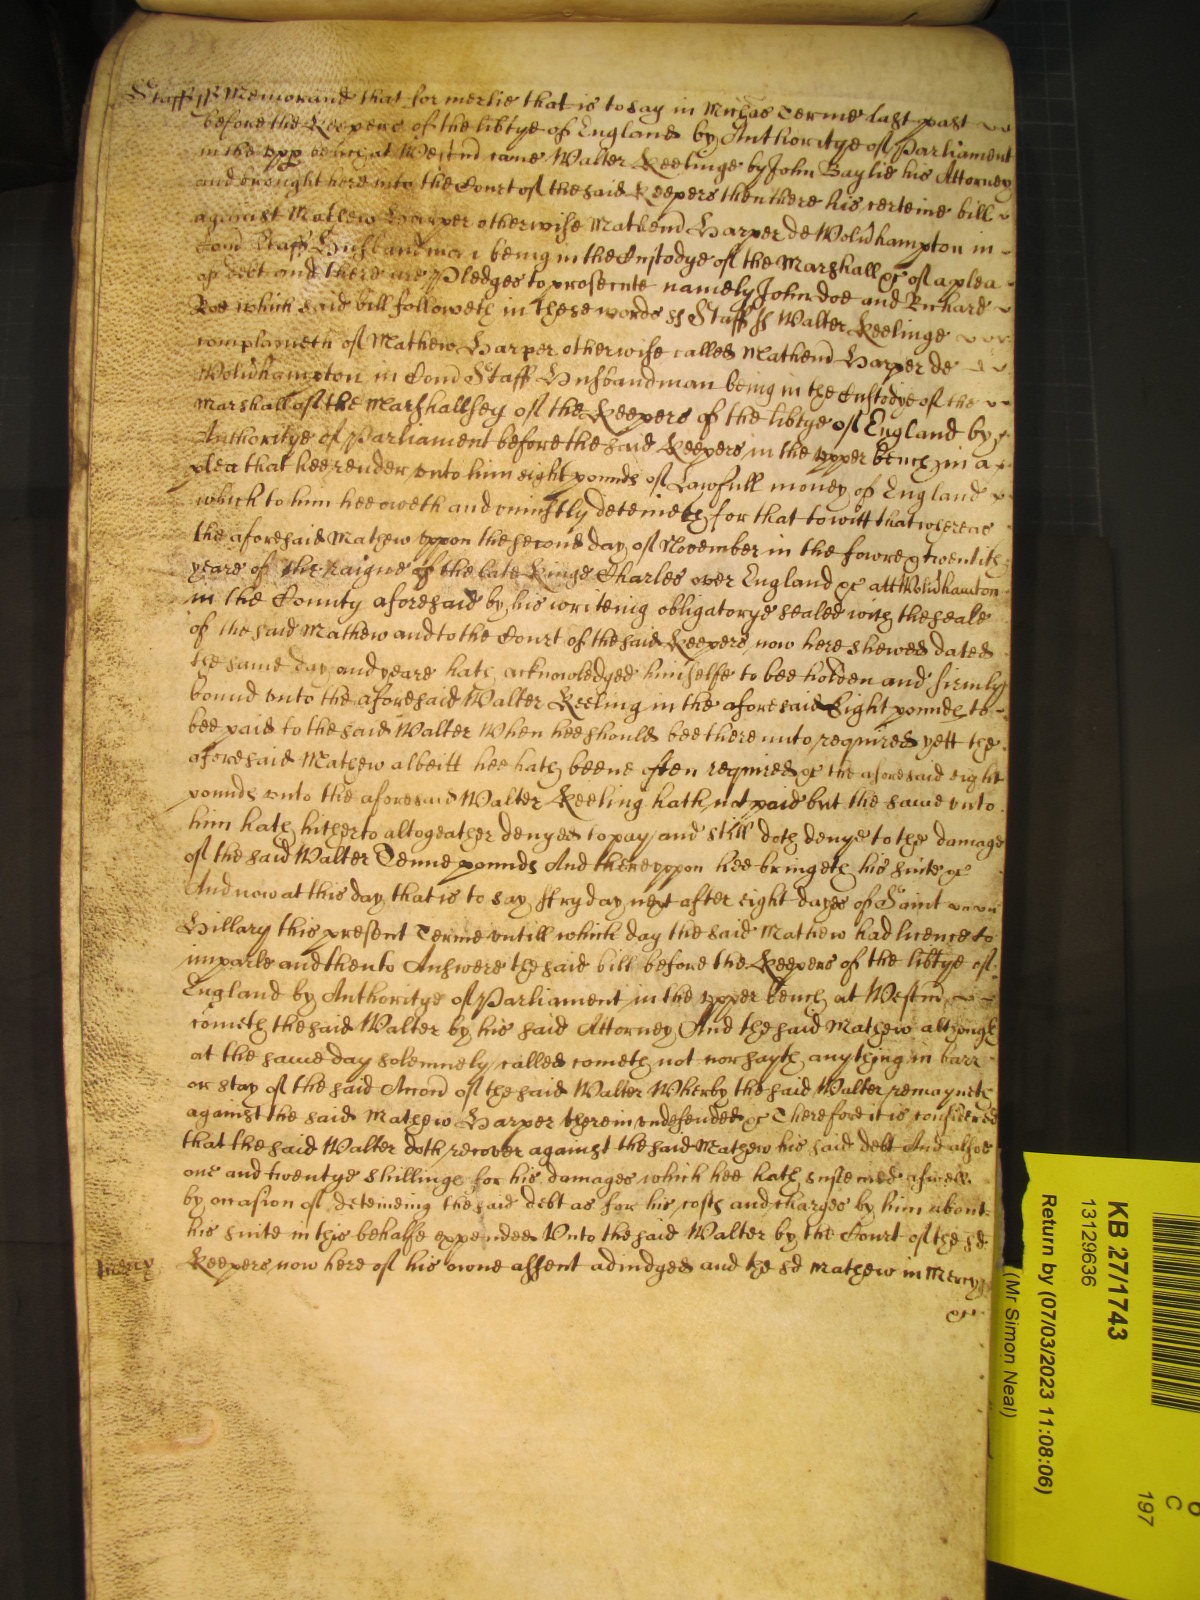 Staff ss Memorand that formerlie that is to say in Michas Terme last past
before the Keepers of the libtye of England by Authoritye of Parliament
in the upp bench at Westmr came Walter Keelinge by John Baylie his Attorney
and brought here into the Court of the said Keepers then there his certeine bill
against Mathew Harper otherwise Mathend Harper de Wolidhampton in
Com Staff Husbandman being in the Custodye of the Marshall &c of a plea
of debt and there are Pledges to prosecute namely John doe and Richard
Roe which said bill followeth in these words ss Staff ss Walter Keelinge
complaineth of Mathew Harper otherwise called Mathend Harper de
Wolidhampton in Com Staff Husbandman being in the Custodye of the
Marshall of the Marshallsey of the Keepers of the libtye of England by
Authoritye of Parliament before the said Keepers in the upper bench in a
plea that hee render unto him eight pounds of Lawfull money of England
which to him hee oweth and uniustly deteineth for that to witt that whereas
the aforesaid Mathew uppon the second day of November in the fowre & twentith
yeare of the raigne of the late Kinge Charles over England &c att Wolidhamton
in the County aforesaid by his writeing obligatorye sealed with the seale
of the said Mathew and to the Court of the said Keepers now here shewed dated
the same day and yeare hath acknowledged himselfe to bee holden and firmly
bound unto the aforesaid Walter Keeling in the aforesaid Eight pounds to
bee paid to the said Walter When hee should bee there unto required yett the
aforesaid Mathew albeitt hee hath beene often required &c the aforesaid eight
pounds unto the aforesaid Walter Keeling hath not paid but the same unto
him hath hitherto altogeather denyed to pay and still doth denye to the damage
of the said Walter Tenne pounds And thereuppon hee bringeth his suite &c
And now at this day that is to say ffryday next after eight dayes of Saint
Hillary this present Terme untill which day the said Mathew had licence to
imparle and then to Answere the said bill before the Keepers of the libtye of
England by Authoritye of Parliament in the upper bench at Westmr
cometh the said Walter by his said Attorney And the said Mathew although
at the same day solemnely called cometh not nor sayth anything in barr
or stay of the said Accon of the said Walter Wherby the said Walter remayneth
against the said Mathew Harper therein undefended &c Therefore it is considered
that the said Walter doth recover against the said Mathew his said debt And alsoe
one and twentye shillings for his damages which hee hath susteined aswell
by occasion of deteineing the said debt as for his costs and charges by him about
his suite in this behalfe expended Unto the said Walter by the Court of the sd
Mercy Keepers now here of his owne assent adiudged and the sd Mathew in Mercy
&c
KB 27/1743
13129636
Return by (07/03/2023 11:08:06)
(Mr Simon Neal)
C
197